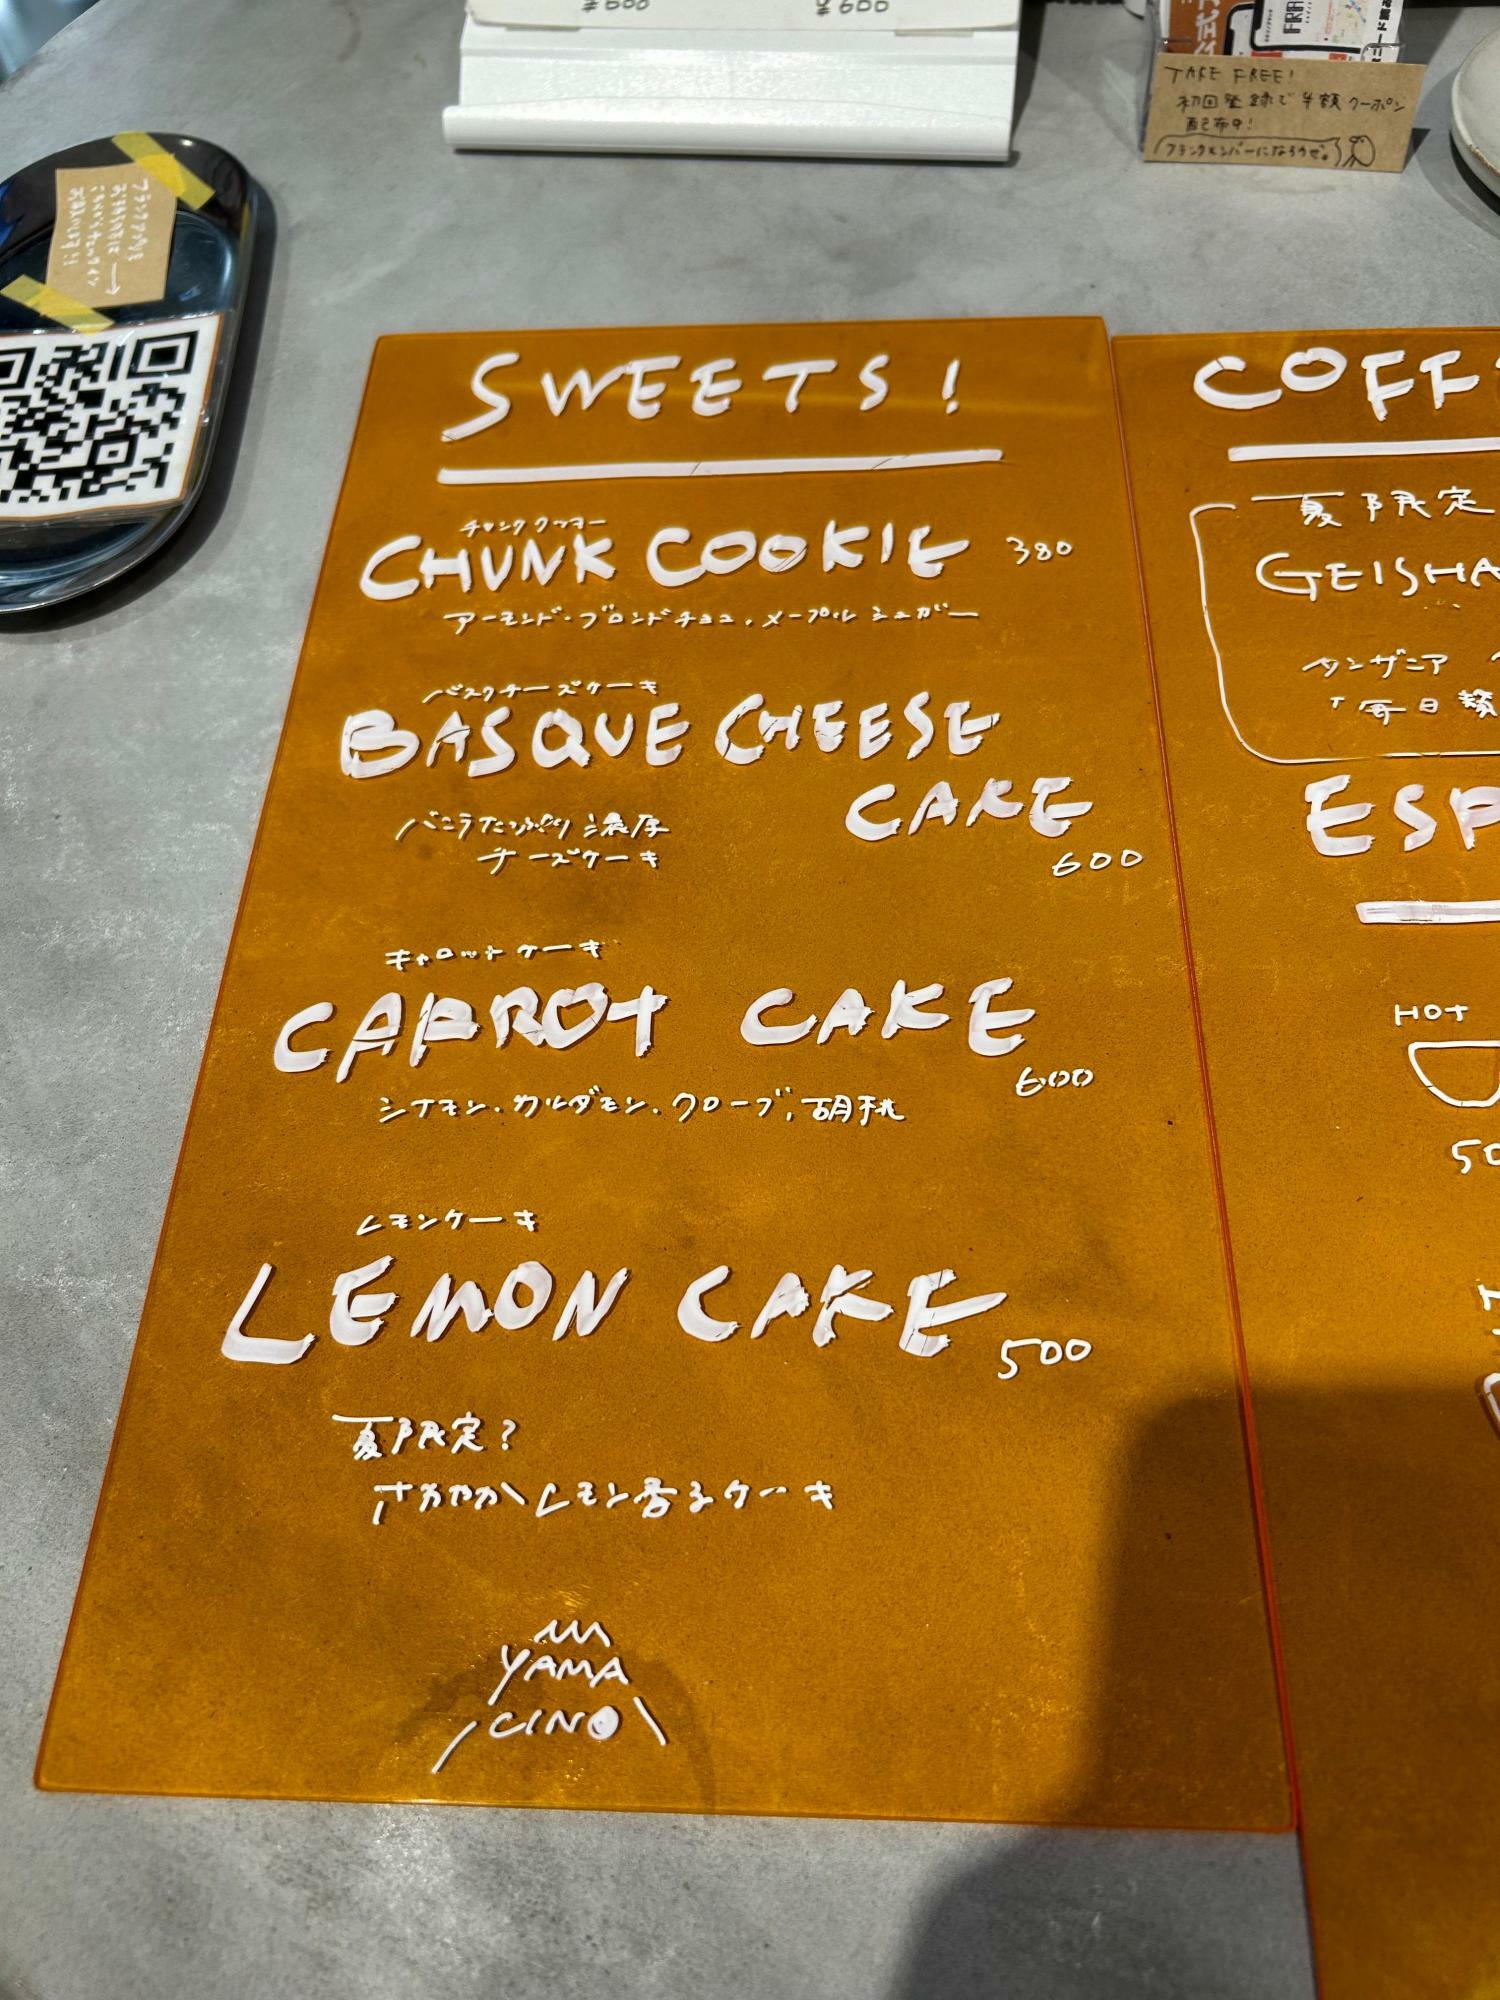 ¥600 ¥600
TAKE FREE!
初回登録で半額クーポン
配布中!
フランクメンバーになろうぜ。
SWEETS!
チャンククッキー
CHUNK COOKIE 380
アーモンド・ブロンドチョコ、メープルシュガー
バスクチーズケーキ
BASQUE CHEESE
CAKE
600
バニラたっぷり濃厚
チーズケーキ
キャロットケーキ
CARROT CAKE
600
シナモン、カルダモン、クローブ、胡桃
レモンケーキ
LEMON CAKE
500
夏限定?
さわやかレモン香るケーキ
YAMA
CINO
COFF
夏限定
GEISHA
タンザニア
「毎日
ESP
HOT
50